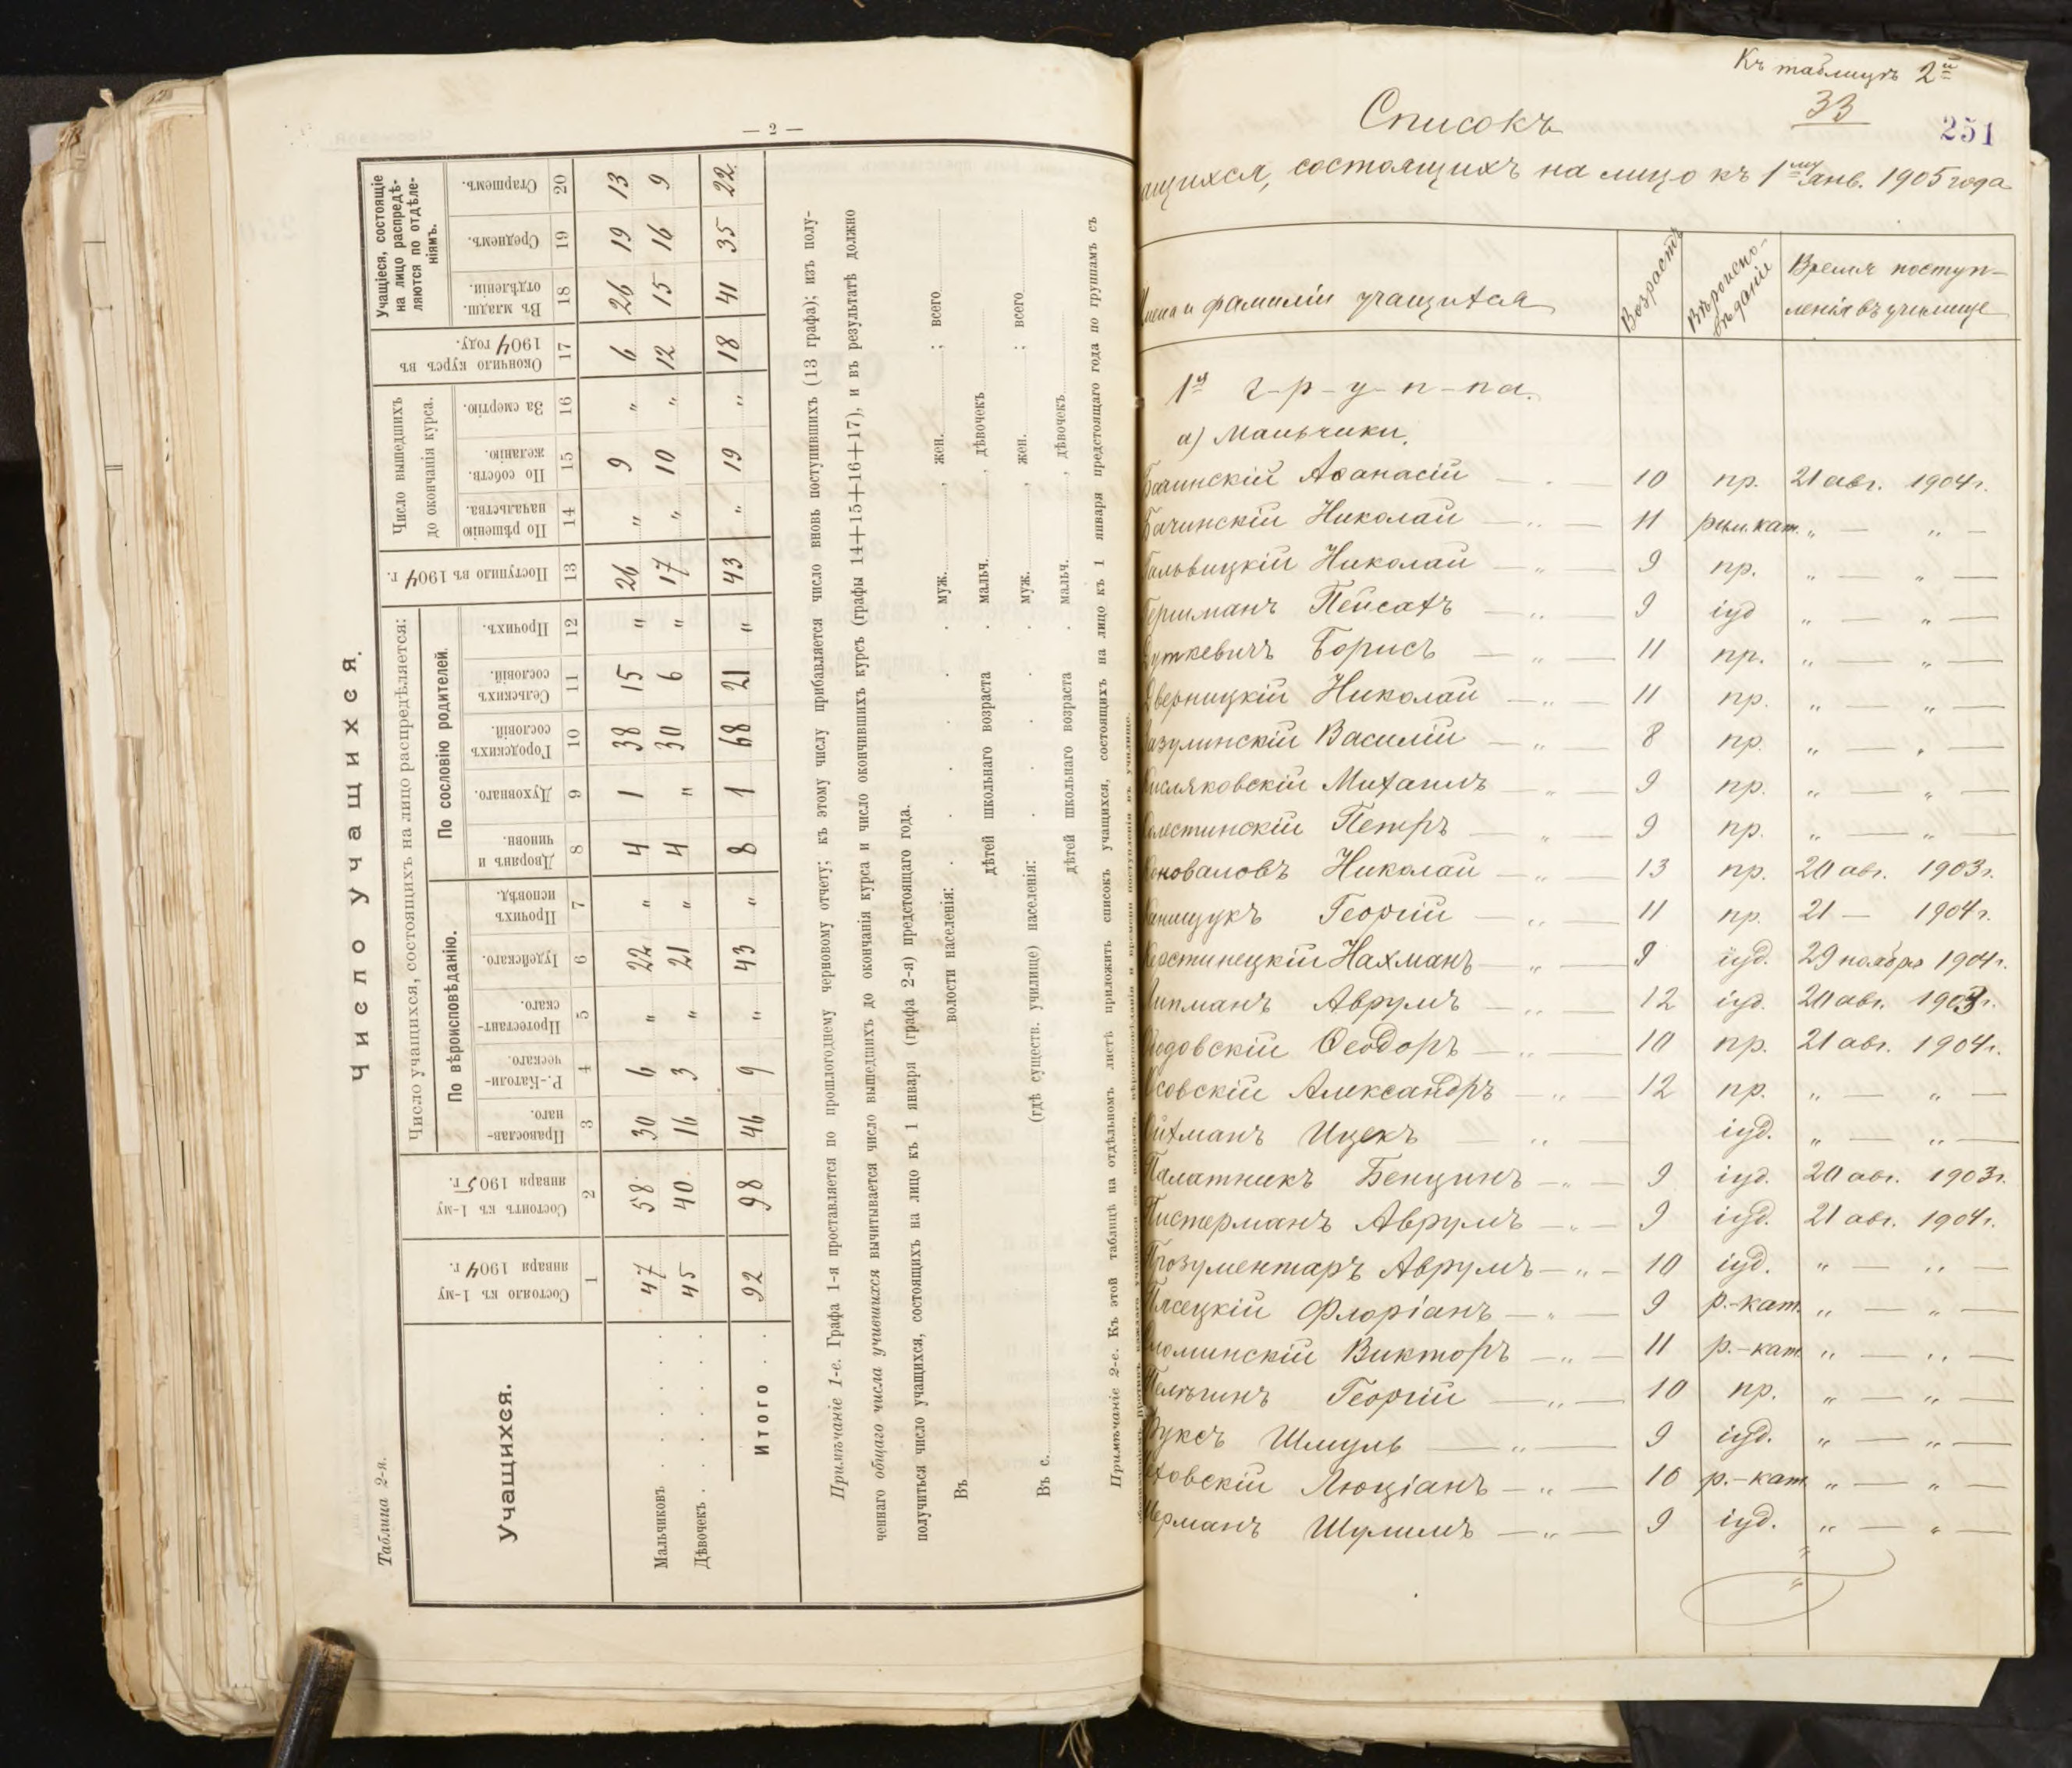 — 2 —
Число учащихся.
Таблица 2-я.
Учащихся.
Состояло къ 1-му января 1904 г.
Состоитъ къ 1-му января 1905 г.
Число учащихся, состоящихъ на лицо распредѣляется:
По вѣроисповѣданію.
Православнаго.
Р.-Католическаго.
Протестантскаго.
Іудейскаго.
Прочихъ исповѣд.
По сословію родителей.
Дворянъ и чиновн.
Духовнаго.
Городскихъ сословій.
Сельскихъ сословій.
Прочихъ.
Поступило въ 1904 г.
Число вышедшихъ до окончанія курса.
По рѣшенію начальства.
По собств. желанію.
За смертію.
Окончило курсъ въ 1904 году.
Учащіеся, состоящіе на лицо распредѣляются по отдѣленіямъ.
Въ младш. отдѣленіи.
Среднемъ.
Старшемъ.
1 2 3 4 5 6 7 8 9 10 11 12 13 14 15 16 17 18 19 20
Мальчиковъ . . . . 47 58 30 6 „ 22 „ 4 1 38 15 „ 26 „ 9 „ 6 26 19 13
Дѣвочекъ . . . . . 45 40 16 3 „ 21 „ 4 „ 30 6 „ 17 „ 10 „ 12 15 16 9
Итого . . 92 98 46 9 „ 43 „ 8 1 68 21 „ 43 „ 19 „ 18 41 35 22
Примѣчаніе 1-е. Графа 1-я проставляется по прошлогоднему черновому отчету; къ этому числу прибавляется число вновь поступившихъ (13 графа); изъ полу-
ченнаго общаго числа учившихся вычитывается число вышедшихъ до окончанія курса и число окончившихъ курсъ (графы 14+15+16+17), и въ результатѣ должно
получиться число учащихся, состоящихъ на лицо къ 1 января (графа 2-я) предстоящаго года.
Въ волости населенія: муж. , жен. ; всего
дѣтей школьнаго возраста мальч. , дѣвочекъ
Въ с. (гдѣ существ. училище) населенія: муж. , жен. ; всего
дѣтей школьнаго возраста мальч. , дѣвочекъ
Примѣчаніе 2-е. Къ этой таблицѣ на отдѣльномъ листѣ приложить списокъ учащихся, состоящихъ на лицо къ 1 января предстоящаго года по группамъ съ
Къ таблицѣ 2й
33
251
Списокъ
ащихся, состоящихъ на лицо къ 1му янв. 1905 года
Имена и фамиліи учащихся
Возрастъ
Вѣроисповѣданіе
Время поступ-
ленія въ училище
1я г-р-у-п-па.
а) Мальчики.
Аѳанасій 10 пр. 21 авг. 1904 г.
Бачинскій Николай — „ — 11 рим. кат. „ — „ —
Николай — „ — 9 пр. „ — „ —
Гершманъ Пейсахъ — „ — 9 іуд „ — „ —
Борисъ — „ — 11 пр. „ — „ —
Дверницкій Николай — „ — 11 пр. „ — „ —
Василій — „ — 8 пр. „ — „ —
Кисляковскій Михаилъ — „ — 9 пр. „ — „ —
Петръ „ — 9 пр. „ — „ —
Коноваловъ Николай — „ — 13 пр. 20 авг. 1903 г.
Георгій — „ — 11 пр. 21 — 1904 г.
Нахманъ — „ — 9 іуд. 29 ноября 1904 г.
Липманъ Аврумъ — „ — 12 іуд. 20 авг. 1903 г.
Ѳеодоръ — „ — 10 пр. 21 авг. 1904 г.
Александръ — „ — 12 пр. „ — „ —
Ицекъ — „ іуд. „ — „ —
Палатникъ Бенціонъ — „ — 9 іуд. 20 авг. 1903 г.
Пистерманъ Аврумъ — „ — 9 іуд. 21 авг. 1904 г.
Прозументаръ Аврумъ — „ — 10 іуд. „ — „ —
Флоріанъ — „ — 9 р.-кат. „ — „ —
Викторъ — „ — 11 р.-кат. „ — „ —
Георгій — „ — 10 пр. „ — „ —
Фуксъ Шмуль — „ — 9 іуд. „ — „ —
Люціанъ — „ — 10 р.-кат. „ — „ —
Шулимъ — „ — 9 іуд. „ — „ —